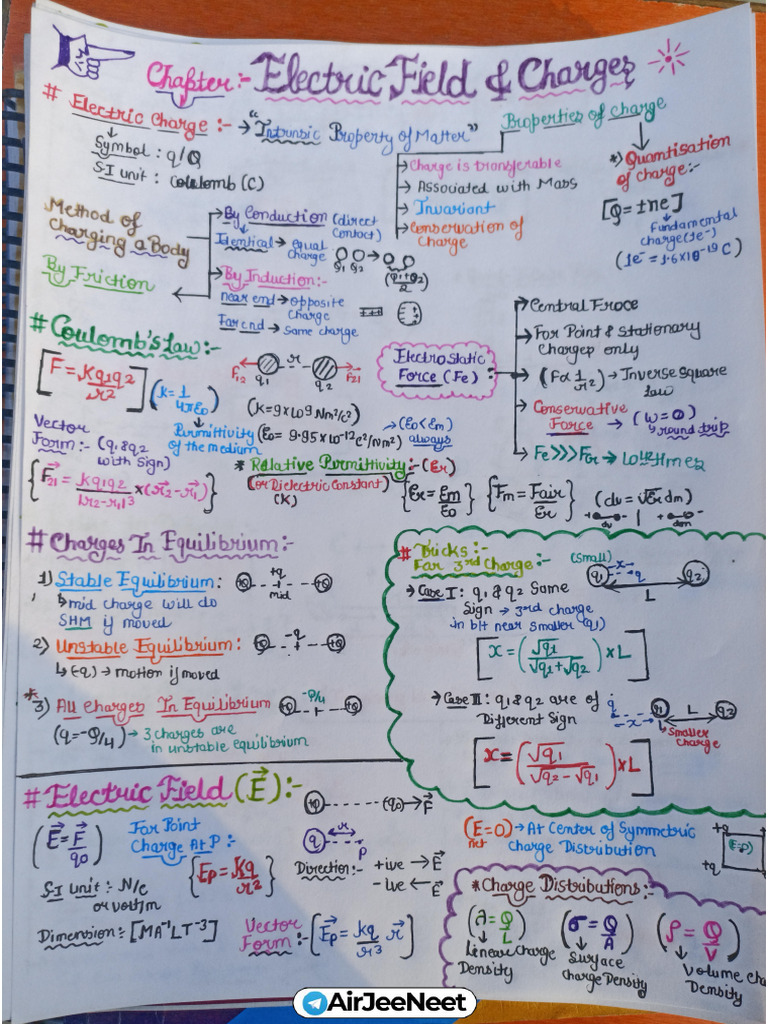 Chapter:- Electric Field & Charges
# Electric Charge :- → "Intrinsic Property of Matter"
Symbol : q/Q
S.I unit : Coulomb (C)
Properties of charge
→ Charge is transferable
→ Associated with Mass
→ Invariant
→ Conservation of Charge
*) Quantisation of charge:-
[Q = ±ne]
Fundamental charge (1e-)
(1e- = 1.6×10^-19 C)
Method of Charging a Body
→ By Conduction (direct contact)
Identical → equal charge
Q1 Q2 → (Q1+Q2)/2
→ By Induction:-
near end → opposite charge
Far end → same charge
By Friction
# Coulomb's Law:-
[F = Kq1q2/r²]
(K = 1/4πε0)
F12 q1 r q2 F21
(K = 9×10^9 Nm²/c²)
Permittivity of the medium
(ε0 = 9.95×10^-12 c²/Nm²)
→ (ε0 < εm) always
Vector Form:- (q1 & q2 with Sign)
{F21 = Kq1q2/|r2-r1|³ × (r2-r1)}
* Relative Permittivity:- (εr)
(or Dielectric Constant) (K)
{εr = εm/ε0} {Fm = Fair/εr} (dv = √εr dm)
Electrostatic Force (Fe) :-
→ Central Froce
→ For Point & Stationary Charges only
→ (F∝ 1/r²) → Inverse Square Law
→ Conservative Force → (W = 0) round trip
→ Fe >>> FG
# Charges In Equilibrium:-
1) Stable Equilibrium :
+Q +q +Q
mid
↳ mid charge will do
SHM if moved
2) Unstable Equilibrium:
+Q -q +Q
↳ (-q) → motion if moved
*3) All Charges In Equilibrium
+Q -Q/4 +Q
(q = -Q/4) → 3 charges are
in unstable equilibrium
# Tricks:-
For 3rd Charge:-
(Small)
q1 x q q2
L
→ Case I : q1 & q2 Same
Sign → 3rd charge
in b/t near smaller (q1)
[x = (√q1/√q1+√q2) × L]
→ Case II : q1 & q2 are of
Different Sign
q x q1 L q2
↳ Smaller charge
[x = (√q1/√q2-√q1) × L]
# Electric Field (E) :-
+Q (q0) → F
(E = F/q0)
For Point
Charge At P:-
{Ep = Kq/r²}
q r P
Direction:- +ive → E
-ive ← E
S.I unit : N/c
or volt/m
Dimension:- [MA^-1LT^-3]
Vector Form:- [Ep = kq/r³ r]
(Enet=0) → At Center of Symmetric
charge Distribution
+q
+q
(E=0)
* Charge Distributions:-
(λ = Q/L)
↳ Linear Charge Density
(σ = Q/A)
↳ Surface charge Density
(ρ = Q/V)
↳ Volume Density
AirJeeNeet